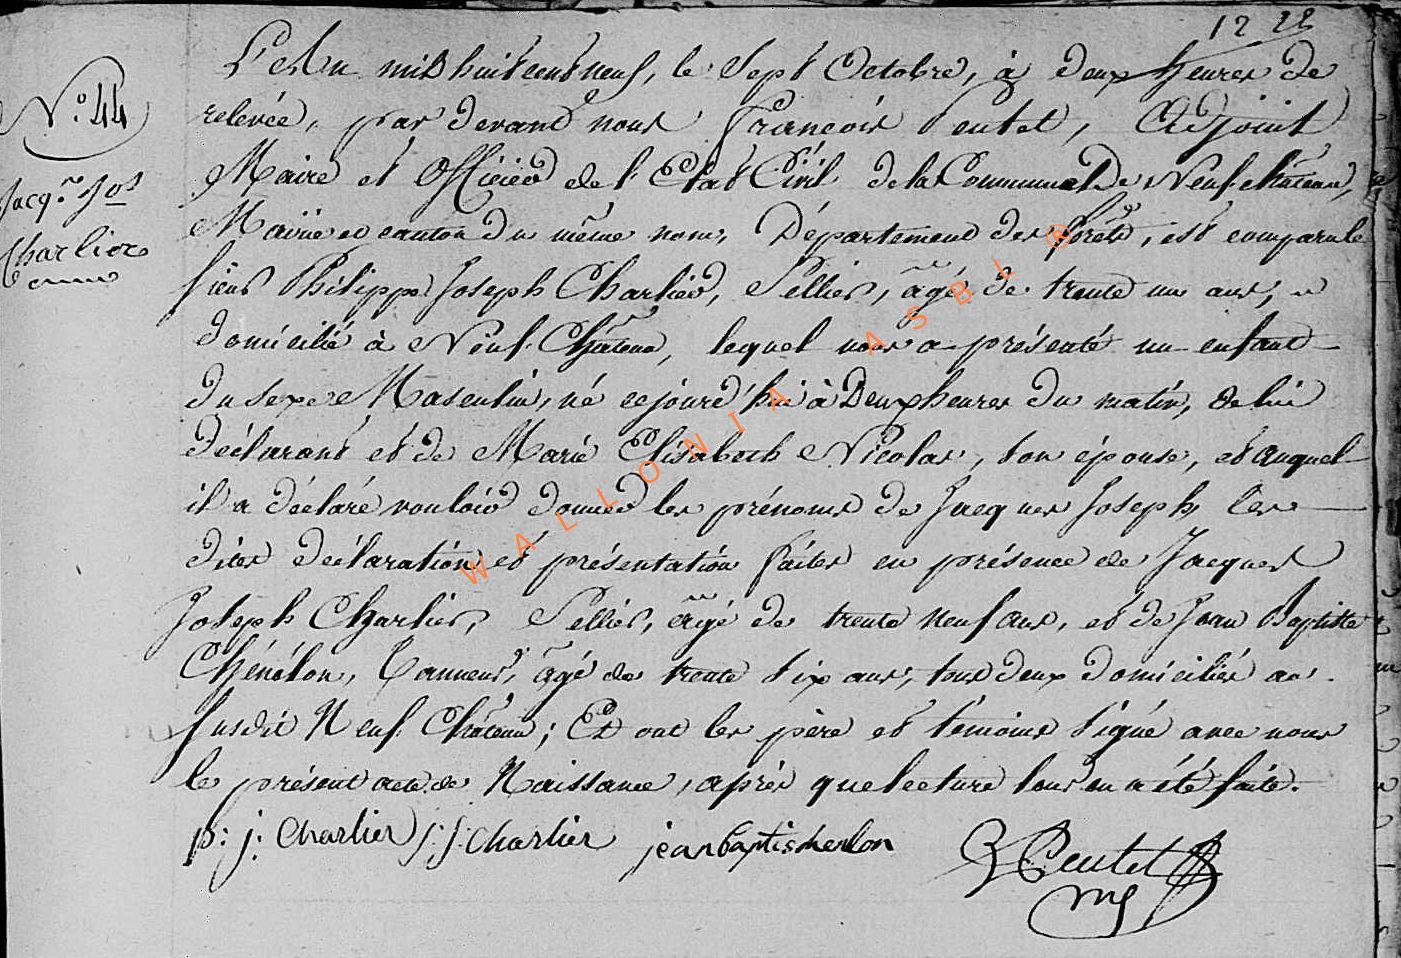 12 22
L'an mil huit cent neuf, le Sept Octobre, à deux heures de
N.° 44
relevée, par devant nous François Peutet, Adjoint
Jacq. Jos
Maire et Officier de l'Etat Civil de la Commune De Neufchâteau,
Charlier
Mairie et canton du même nom, Département des forêts, est comparu le
sieur Philippe Joseph Charlier, Sellier, âgé de trente un ans,
domicilié à Neuf-Château, lequel nous a présenté un enfant
du sexe Masculin, né cejourd'hui à Deux heures du matin, de lui
déclarant et de Marie Elisabeth Nicolas, son épouse, et auquel
il a déclaré vouloir donner les prénoms de Jacques Joseph, Les
dites déclaration et présentation faites en présence de Jacques
Joseph Charlier, Sellier, âgé de trente neuf ans, et de Jean Baptiste
Chénélon, Tanneur, âgé de trente six ans, tous deux domiciliés au
susdit Neuf-Château; Et ont les père et témoins signé avec nous
le présent acte de Naissance, après que lecture leur en a été faite.
p: j: Charlier j: j: Charlier jean baptis Peutet
WALLONIA ASBL